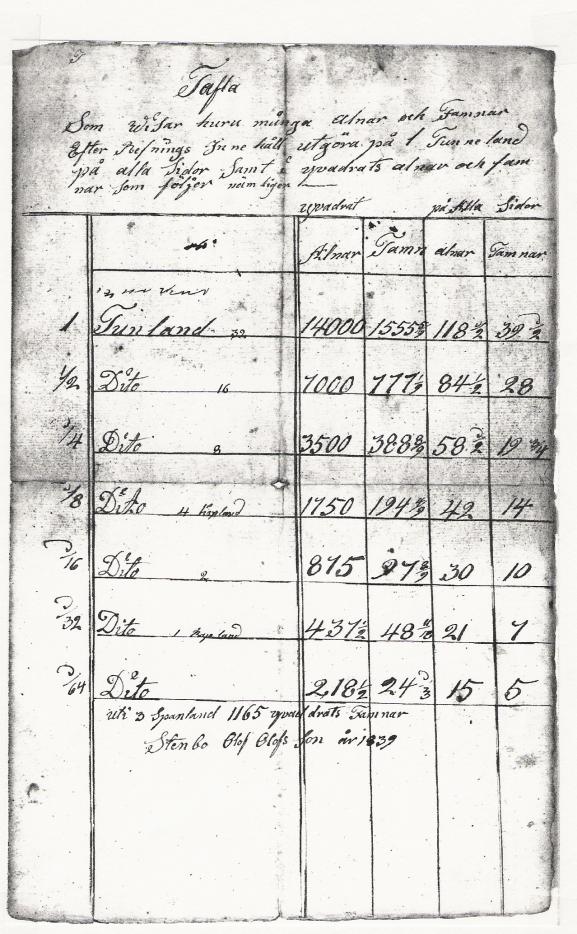 Tafla
Som Wisar huru många alnar och Famnar
Efter Refnings Inne håll utgöra på 1 Tunneland
på alla Sidor Samt i qvadrats alnar och fam
nar Som följer nämligen
qvadrat på Alla Sidor
Alnar Famn alnar Famnar
1 Tunland 32 14000 1555 5/9 118 1/2 39 1/2
1/2 Dito 16 7000 777 1/2 84 1/2 28
1/4 Dito 8 3500 388 8/9 58 1/2 19 3/4
1/8 Dito 4 Kapland 1750 194 4/9 42 14
1/16 Dito 2 875 97 2/9 30 10
1/32 Dito 1 Kapland 437 1/2 48 21 7
1/64 Dito 218 1/2 24 1/3 15 5
uti 3 Spanland 1165 qvadrats Famnar
Stenbo Olof Olofs Son år 1839